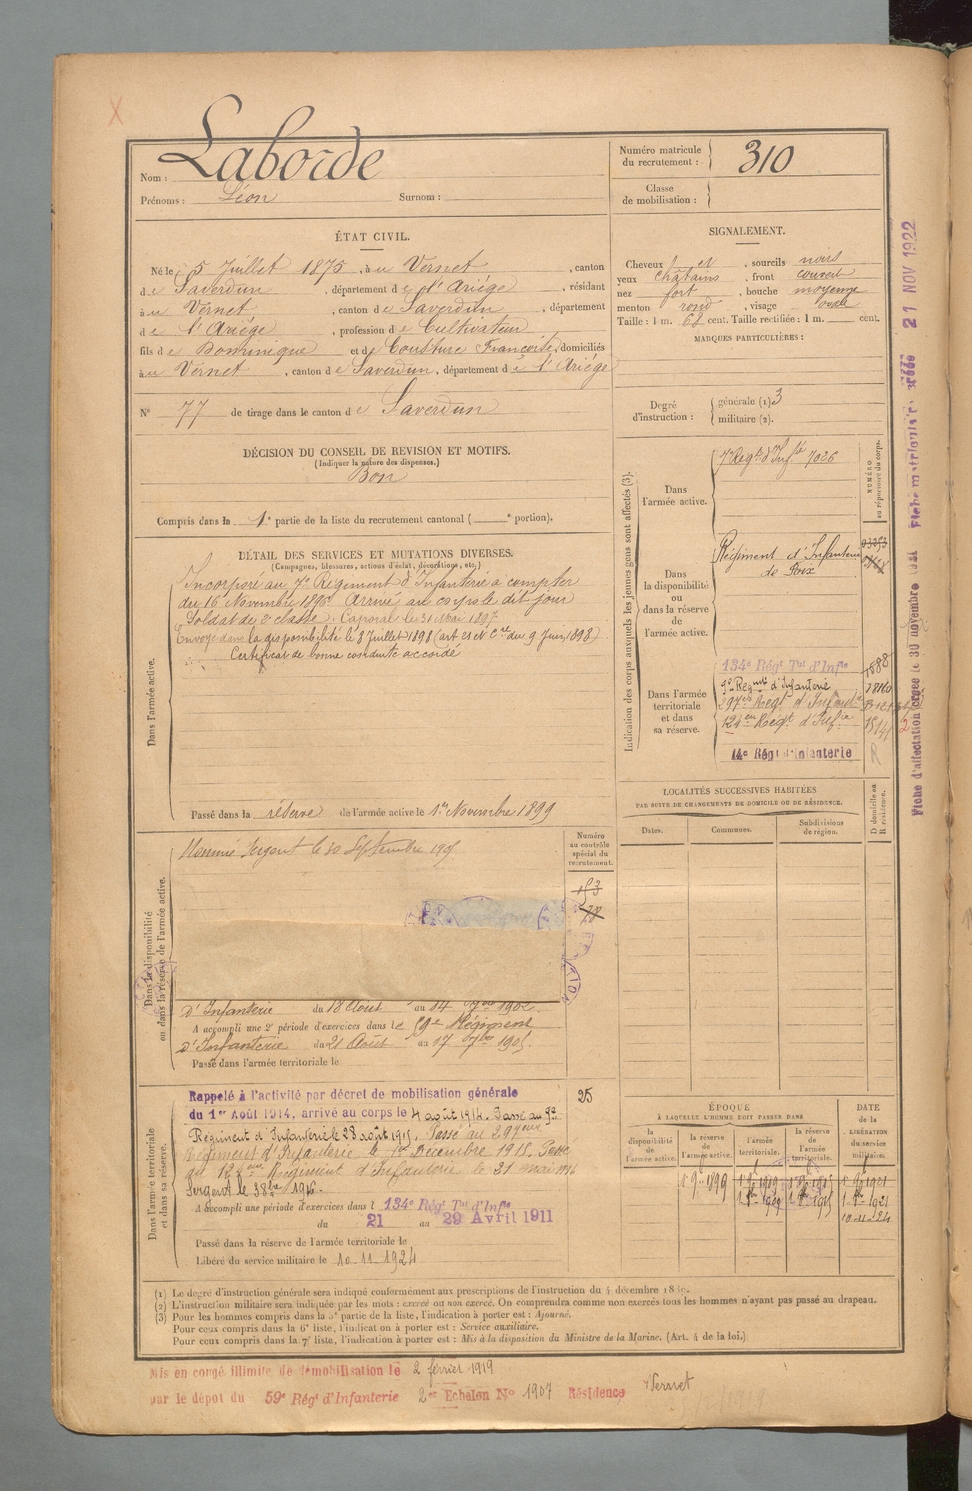 Nom : Laborde
Prénoms : Léon Surnom :
Numéro matricule du recrutement : 310
Classe de mobilisation :
ÉTAT CIVIL.
Né le 5 Juillet 1875, à u Vernet, canton
d e Saverdun, département d e l'Ariége, résidant
à u Vernet, canton d e Saverdun, département
d e l'Ariége, profession d e Cultivateur
fils d e Dominique et d e Cousture Françoise, domiciliés
à u Vernet, canton d e Saverdun, département d e l'Ariége
N° 77 de tirage dans le canton d e Saverdun
SIGNALEMENT.
Cheveux et, sourcils noirs
yeux châtains, front couvert
nez fort, bouche moyenne
menton rond, visage ovale
Taille : 1 m. 68 cent. Taille rectifiée : 1 m. cent.
MARQUES PARTICULIÈRES :
Degré d'instruction : générale (1) 3
militaire (2).
DÉCISION DU CONSEIL DE REVISION ET MOTIFS.
(Indiquer la nature des dispenses.)
Bon
Compris dans la 1e partie de la liste du recrutement cantonal ( e portion).
DÉTAIL DES SERVICES ET MUTATIONS DIVERSES.
(Campagnes, blessures, actions d'éclat, décorations, etc.)
Dans l'armée active.
Incorporé au 7e Régiment d'Infanterie à compter
du 16 Novembre 1896. Arrivé au corps le dit jour
Soldat de 2e classe. Caporal le 31 Mai 1897
Envoyé dans la disponibilité le 8 Juillet 1898 (art du 9 Juin 1898)
Certificat de bonne conduite accordé
Passé dans la réserve de l'armée active le 1er Novembre 1899
Indication des corps auxquels les jeunes gens sont affectés (3).
NUMÉRO au répertoire du corps.
Dans l'armée active.
7e Régt d'Infie 7026
Dans la disponibilité ou dans la réserve de l'armée active.
Régiment d'Infanterie
de Foix
Dans l'armée territoriale et dans sa réserve.
134e Régt Tal d'Infie
9e Régiment d'Infanterie 18160
297e Régt d'Infanterie
124e Régt d'Infie
14e Régt d'Infanterie R
LOCALITÉS SUCCESSIVES HABITÉES
PAR SUITE DE CHANGEMENTS DE DOMICILE OU DE RÉSIDENCE.
D domicile ou R résidence.
Dates. Communes. Subdivisions de région.
Dans la disponibilité ou dans la réserve de l'armée active.
Numéro au contrôle spécial du recrutement.
Nommé Sergent le 30 Septembre
153
d'Infanterie du 18 Août au 14 7bre 1902.
A accompli une 2e période d'exercices dans le 59e Régiment
d'Infanterie du 21 Août au 17 7bre 1905.
Passé dans l'armée territoriale le
Dans l'armée territoriale et dans sa réserve.
25
Rappelé à l'activité par décret de mobilisation générale
du 1er Août 1914, arrivé au corps le 4 août 1914. Passé au 9e
Régiment d'Infanterie le 28 août 1915. Passé au 297eme
Régiment d'Infanterie le 1er Décembre 1915. Passé
au 124eme Régiment d'Infanterie le 31 mai 1916
Sergent le 1916.
A accompli une période d'exercices dans l 134e Régt Tal d'Infie
du 21 au 29 Avril 1911
Passé dans la réserve de l'armée territoriale le
Libéré du service militaire le 10-11-1924
ÉPOQUE
À LAQUELLE L'HOMME DOIT PASSER DANS
DATE de la LIBÉRATION du service militaire.
la disponibilité de l'armée active.
la réserve de l'armée active.
l'armée territoriale.
la réserve de l'armée territoriale.
1899
10-11-24
(1) Le degré d'instruction générale sera indiqué conformément aux prescriptions de l'instruction du 4 décembre 1889.
(2) L'instruction militaire sera indiquée par les mots : exercé ou non exercé. On comprendra comme non exercés tous les hommes n'ayant pas passé au drapeau.
(3) Pour les hommes compris dans la 5e partie de la liste, l'indication à porter est : Ajourné.
Pour ceux compris dans la 6e liste, l'indication à porter est : Service auxiliaire.
Pour ceux compris dans la 7e liste, l'indication à porter est : Mis à la disposition du Ministre de la Marine. (Art. 4 de la loi.)
Mis en congé illimité de démobilisation le 2 février 1919
par le dépôt du 59e Régt d'Infanterie 2e Echelon N° 1907 Résidence Vernet
21 NOV 1922